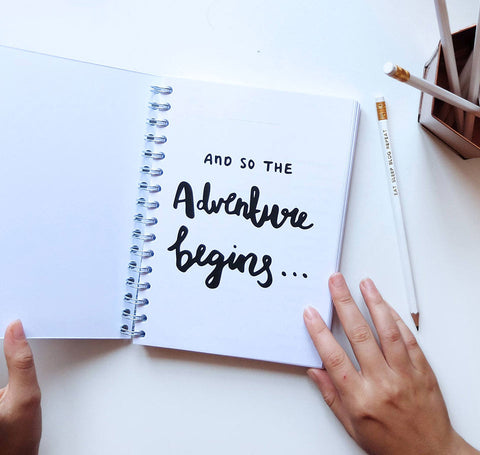 AND SO THE
Adventure
begins...
EAT SLEEP BLOG REPEAT